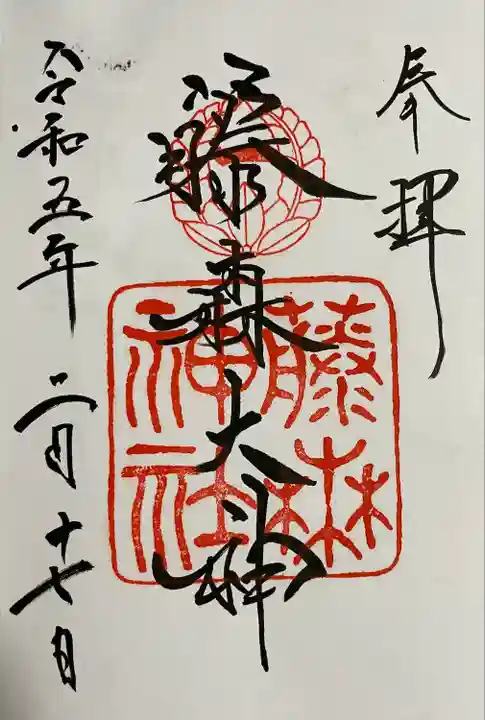 奉拝
藤森大神
藤森
神社
令和五年二月十七日